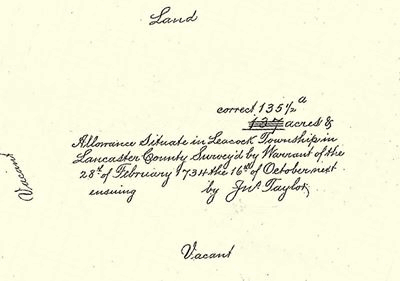 Land
correct 135½ a
137 acres &
Allowance Situate in Leacock Township in
Lancaster County Survey'd by Warrant of the
28th of February 1734 the 16th of October next
ensuing by Jns Taylor
Vacant
Vacant